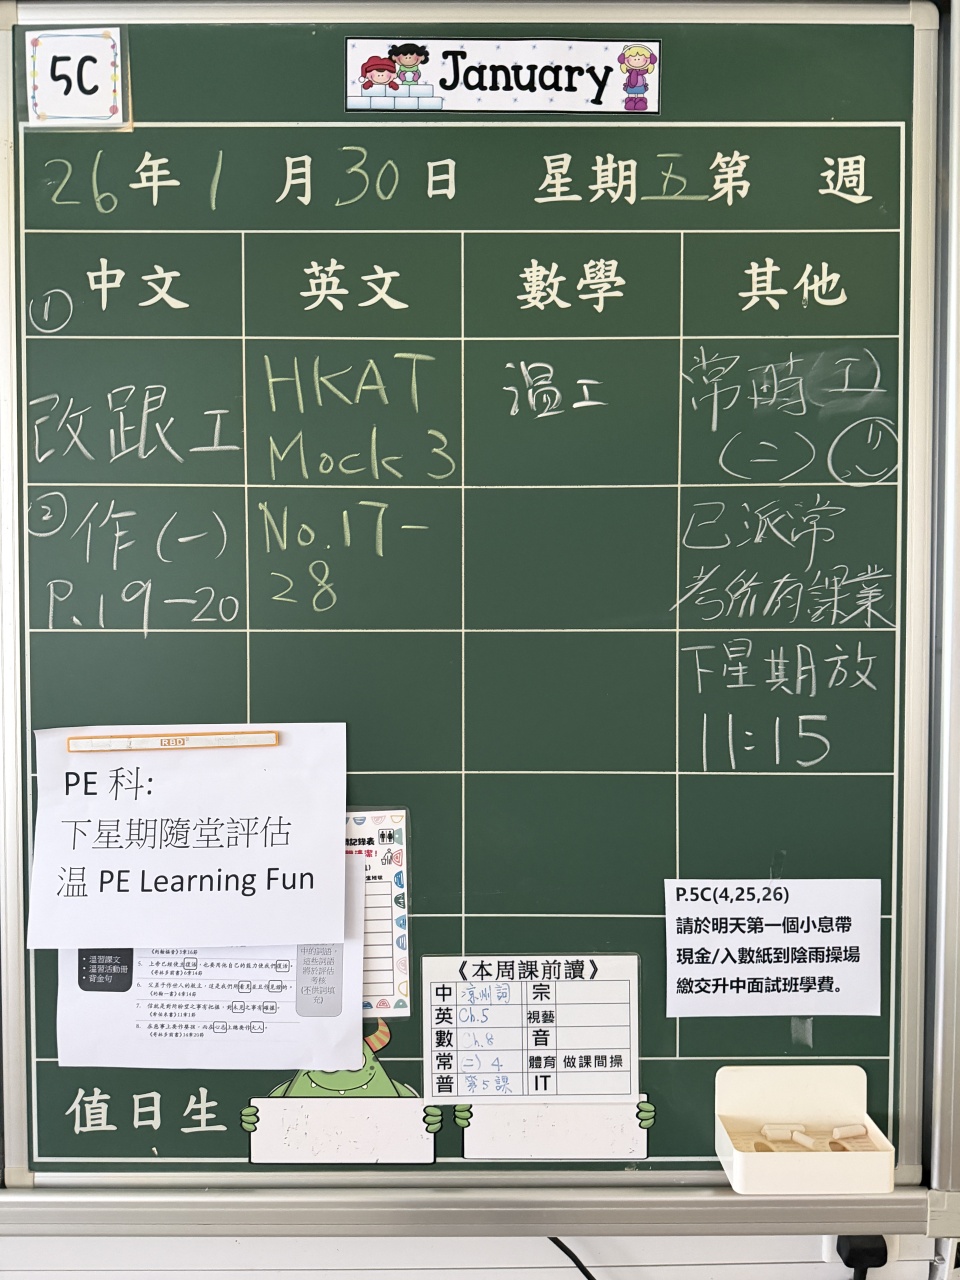 5C
January
26年1月30日 星期五第 週
中文 英文 數學 其他
①
改跟工
HKAT
Mock 3
溫工
常時工
(二)
②作(一)
P.19-20
No.17-
28
已派常
考所有課業
下星期放
11:15
RBD
PE 科:
下星期隨堂評估
温 PE Learning Fun
P.5C(4,25,26)
請於明天第一個小息帶
現金/入數紙到陰雨操場
繳交升中面試班學費。
• 溫習課文
• 溫習活動冊
• 背金句
《本周課前讀》
中 涼州詞 宗
英 Ch.5 視藝
數 Ch.8 音
常 (二) 4 體育 做課間操
普 第5課 IT
值日生